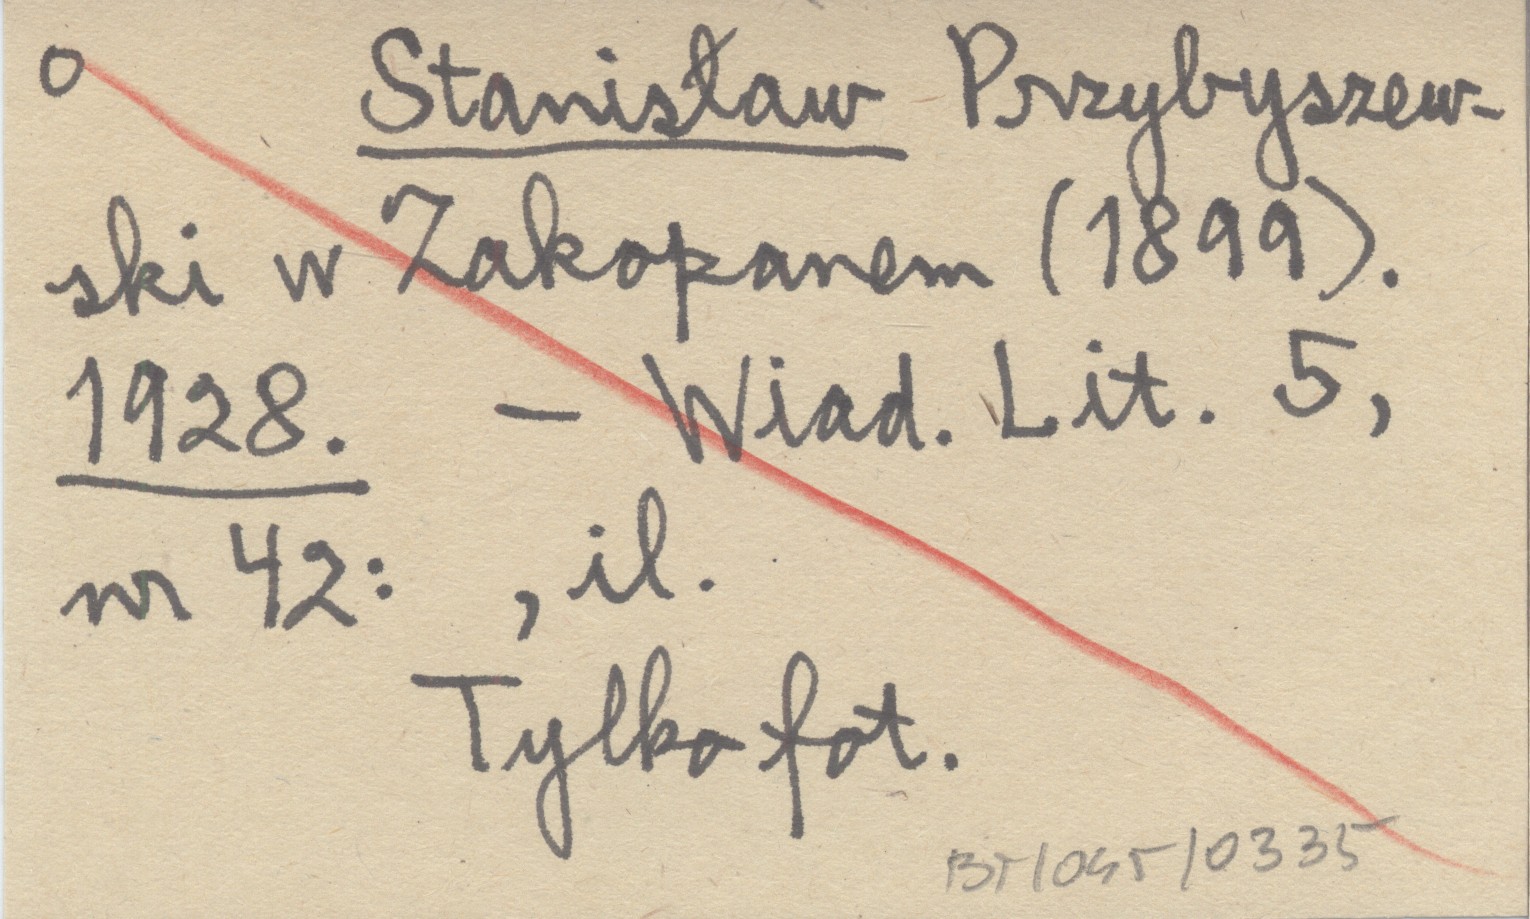 o Stanisław Przybyszew-
ski w Zakopanem (1899).
1928. — Wiad. Lit. 5,
nr 42: , il.
Tylko fot.
BT/OST/0335